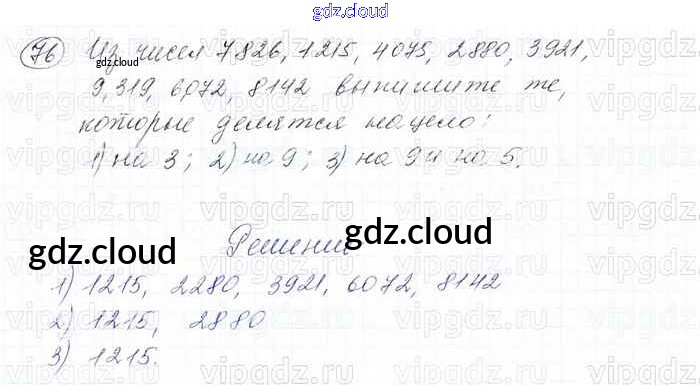 gdz.cloud
76 Из чисел 7826, 1215, 4075, 2880, 3921,
gdz.cloud
9,319, 6072, 8142 выпишите те,
которые делятся нацело:
1) на 3; 2) на 9; 3) на 9 и на 5.
Решение
gdz.cloud gdz.cloud
1) 1215, 2280, 3921, 6072, 8142
2) 1215, 2880
3) 1215.
vipgdz.ru